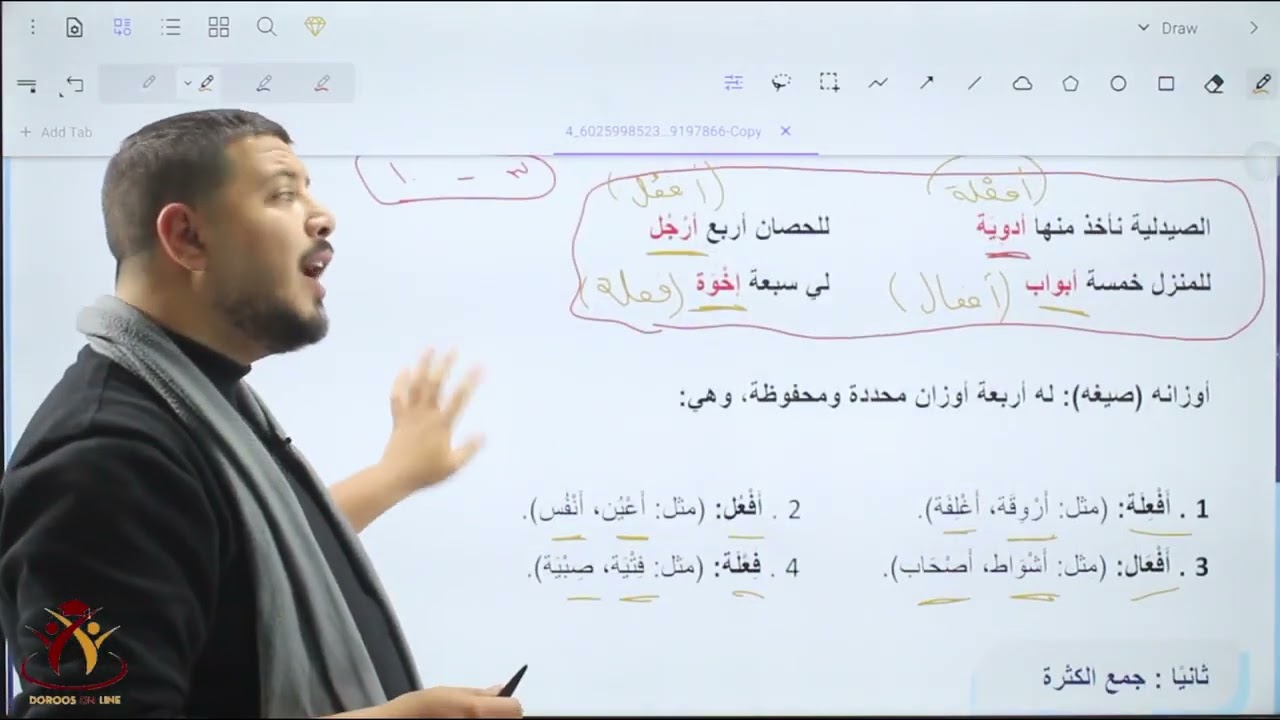 Draw
Add Tab
4_6025998523...9197866-Copy
٣ - ١٠
(أفعِلة) (أفعُل)
الصيدلية نأخذ منها أدوِيَة للحصان أربع أرْجُل
للمنزل خمسة أبواب (أفعال) لي سبعة إخْوَة (فعلة)
أوزانه (صيغه): له أربعة أوزان محددة ومحفوظة، وهي:
1 . أَفْعِلَة: (مثل: أرْوِقَة، أَغْلِفَة). 2 . أَفْعُل: (مثل: أَعْيُن، أَنْفُس).
3 . أَفْعَال: (مثل: أَشْوَاط، أَصْحَاب). 4 . فِعْلَة: (مثل: فِتْيَة، صِبْيَة).
ثانيًا : جمع الكثرة
DOROOS ON LINE